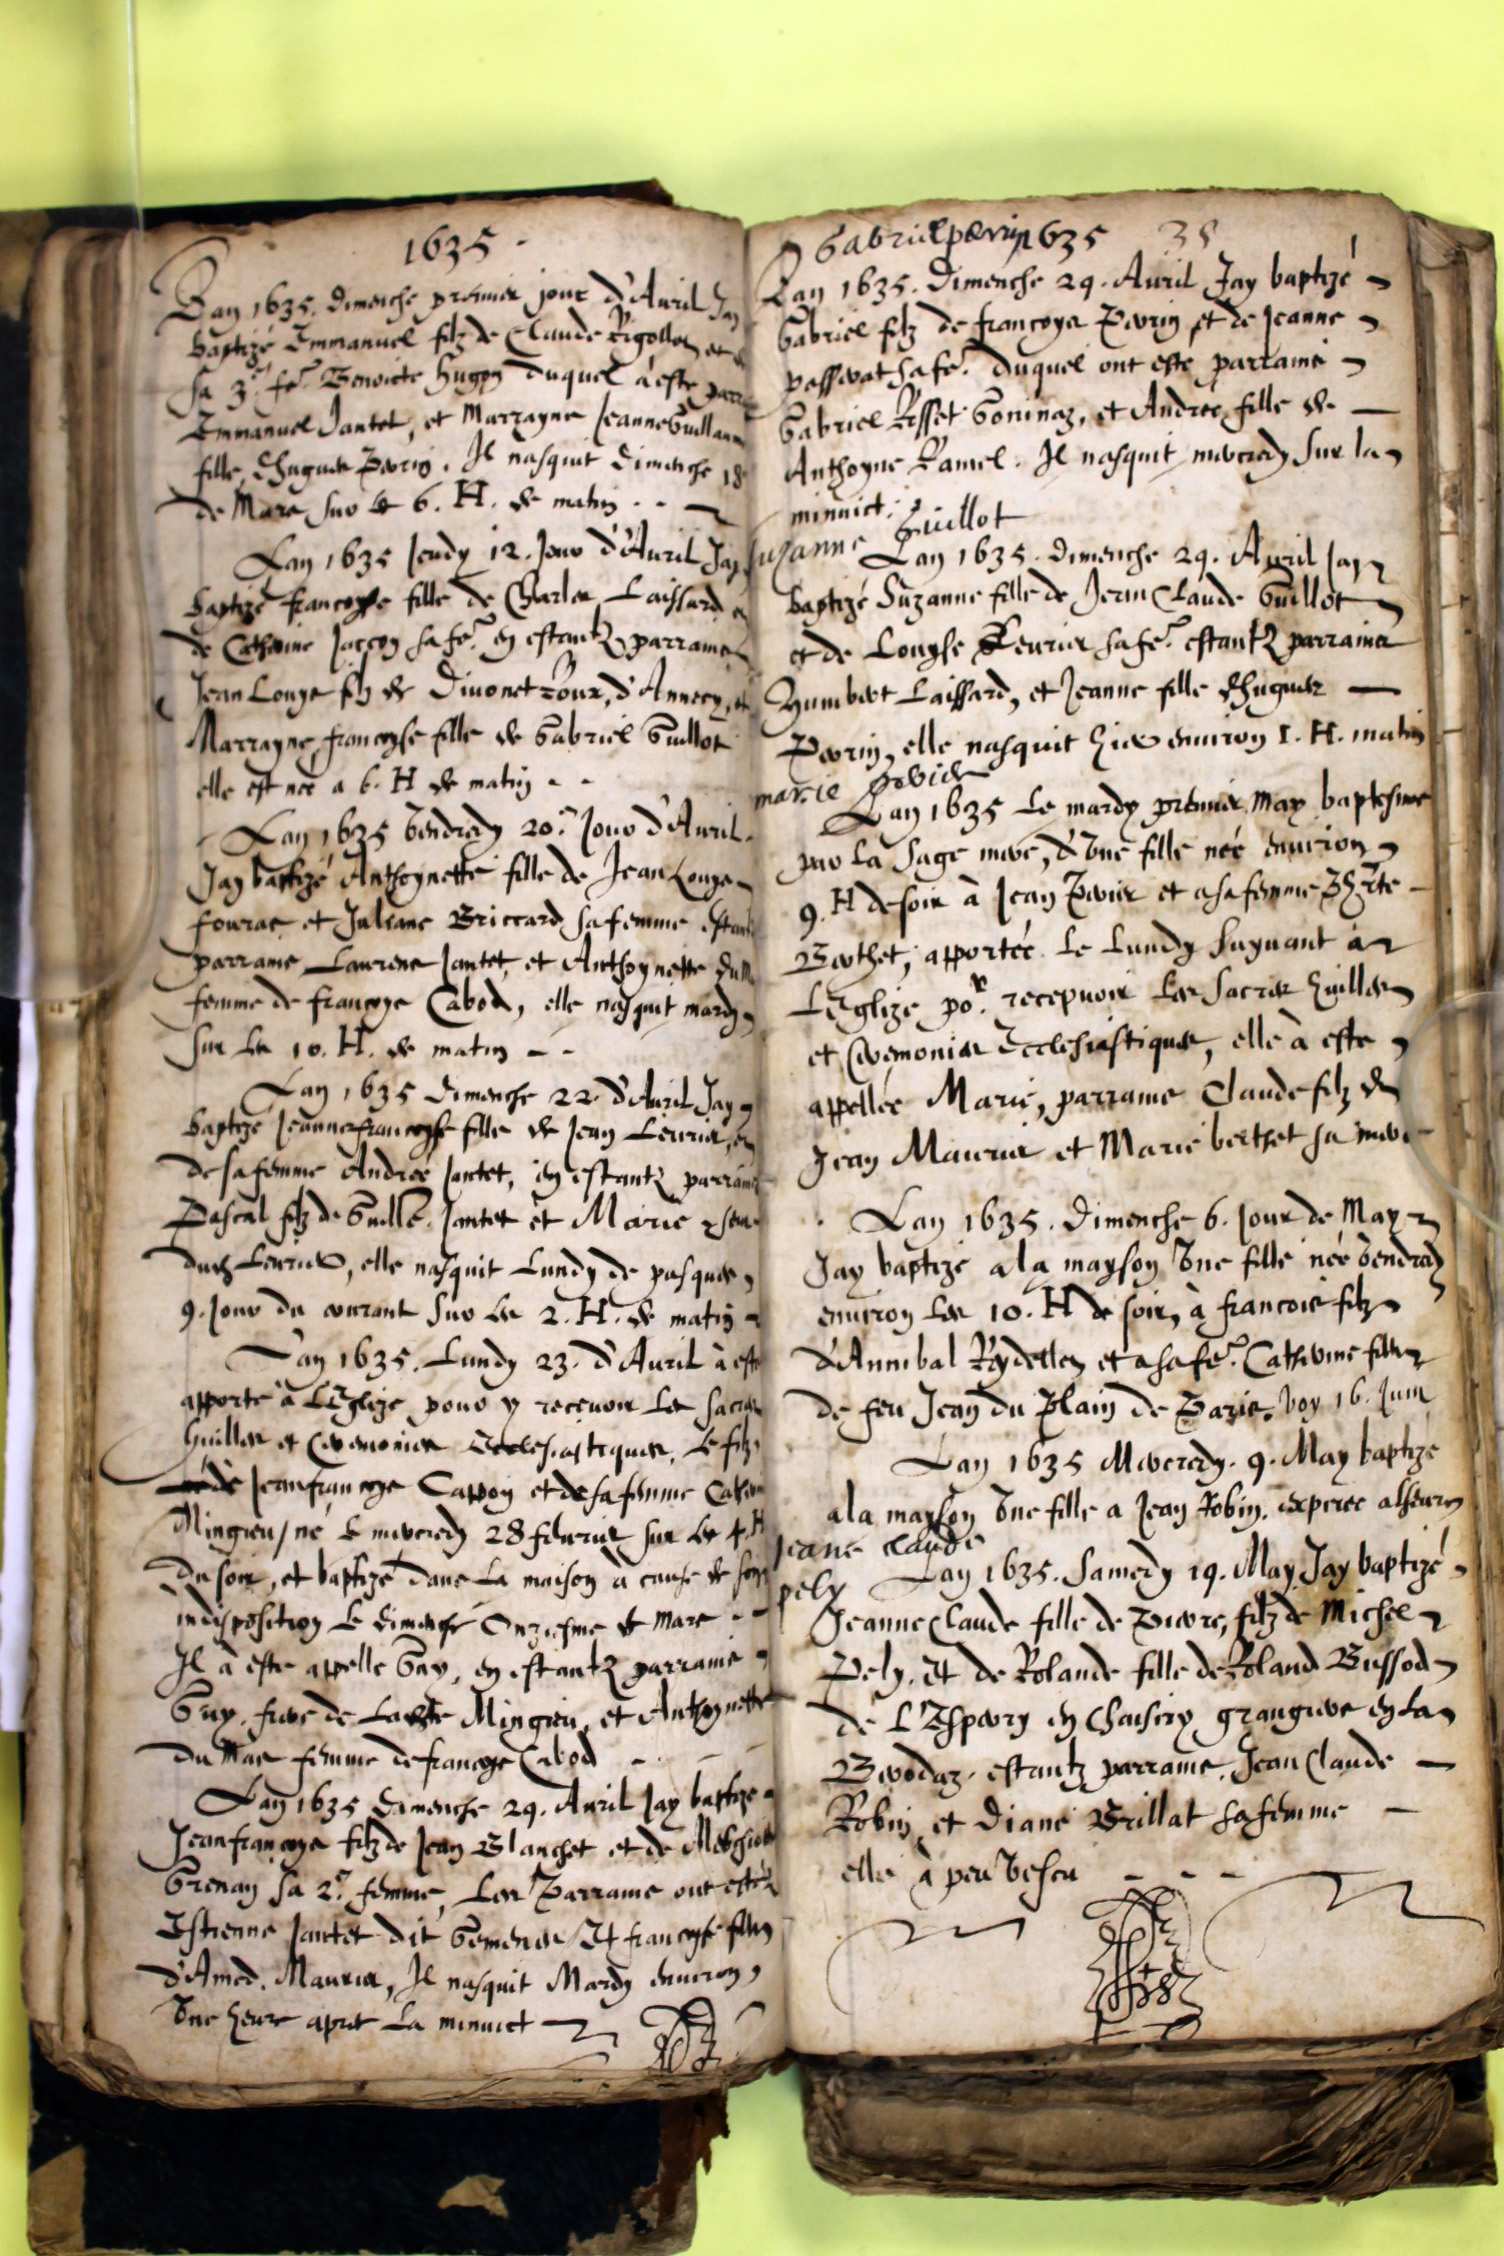 1635 -
Lan 1635. dimenche premier jour d'Auril Jay
baptizé Emmanuel filz de Claude Rigollet et de
sa 3.e fe. Benoicte Hugon duquel à esté parr
Emmanuel Jantet, et Marrayne Jeanne Guillau
fille d'Hugues Perrin. Il nasquit dimenche 18
de Mars sur les 6. H. de matin - -
Lan 1635 Jeudy 12. Jour d'Auril Jay
baptizé françoyse fille de Charles Laissard et
de Catherine Jaccon sa fe. en estantz parrains
Jean Louys filz de d'Annecy, et
Marrayne françoyse fille de Gabriel Guillot
elle est née a 6. H de matin - -
Lan 1635 Vendredy 20.e Jour d'Auril.
Jay baptizé Anthoynette fille de Jean Louys
fouras et Juliane Briccard sa femme estant
parrains Laurens Jantet, et Anthoynette du M
femme de françoys Cabod, elle nasquit mardy
sur les 10. H. de matin - -
Lan 1635 dimenche 22. d'Auril Jay
baptizé Jeanne françoyse fille de Jean Leurier, et
de sa femme Andree Jantet, en estantz parrains
Pascal filz de Guille. Jantet et Marie
dud. Leurier, elle nasquit Lundy de pasques
9. Jour du courant sur les 2. H. de matin
Lan 1635. Lundy 23. d'Auril à esté
apporté à L'Eglize pour y recevoir les sacrés
huilles et Ceremonies Ecclesiastiques, Le filz
de Jean françoys Cappon et de sa femme Cather
Mingieu, né le mercredy 28 feburier sur les 4. H
du soir, et baptizé dans La maison à cause de son
indisposition le dimenche Onziesme de Mars - -
Il à esté appellé Guy, en estantz parrains
Guy frere de Ladte Mingieu, et Anthoynette
du Mas femme de françoys Cabod -
Lan 1635 dimenche 29. Auril Jay baptizé
Jean françoys filz de Jean Blanchet et de Melchior
Grenay sa 2.e femme, Les Parrains ont esté
Estienne Jantet dit Gemeness Et françoyse fille
d'Amed. Maurier, Il nasquit Mardy enuiron
Vne heure apres La minuict
Gabriel perrin 1635 35
Lan 1635. dimenche 29. Auril Jay baptizé
Gabriel filz de françoys Perrin et de Jeanne
passerat sa fe. duquel ont esté parrains
Gabriel Rosset Goninaz, et Andrée fille de
Anthoyne Ramel. Il nasquit mercredy sur la
minuict.
Suzanne Guillot
Lan 1635. dimenche 29. Auril Jay
baptizé Suzanne fille de Jean Claude Guillot
et de Louyse Leurier sa fe. estantz parrains
Humbert Laissard, et Jeanne fille d'Hugues
Perrin, elle nasquit hier enuiron 1. H. matin
marie
Lan 1635 Le mardy premier May baptesme
par la sage mere, d'Vne fille née enuiron
9. H de soir à Jean Perrier et a sa femme
Berthet, apportée Le Lundy suyuant à
L'Eglize por. recepuoir Les sacrés huilles
et Ceremonies Ecclesiastiques, elle à esté
appellée Marie, parrains Claude filz de
Jean Maurier et Marie berthet sa mere
Lan 1635. dimenche 6. Jour de May
Jay baptizé a la mayson Vne fille née Vendredy
enuiron les 10. H de soir, à françois filz
d'Annibal Reydellet et a sa fe. Catherine fille
de feu Jean du Plain de Paris. Voy 16. Juin
Lan 1635 Mercredy. 9. May baptizé
a la mayson Vne fille a Jean Robin. expirée a lheure
Jeane claude
pely
Lan 1635. Samedy 19. May Jay baptizé
Jeanne Claude fille de Pierre, filz de Michel
Pely. Et de Rolande fille de Roland Bussod
de L'Espery en Chaisiry grangiere en la
Berodaz. estantz parrains, Jean Claude
Robin, et Diane Brillat sa femme
elle à peu Vescu - - -